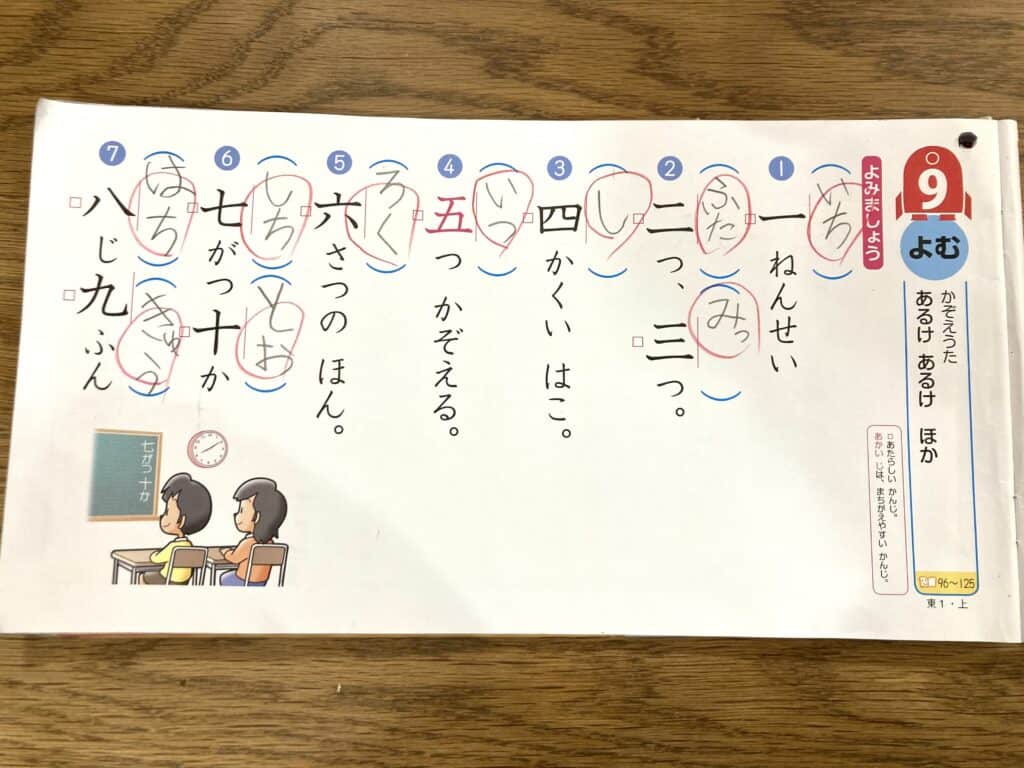 9
よむ
かぞえうた
あるけ あるけ ほか
96〜125
東1・上
よみましょう
□あたらしい かんじ。
あかい じは、まちがえやすい かんじ。
1
(いち)
一ねんせい
2
(ふた)(みっ)
二つ、三つ。
3
(し)
四かくい はこ。
4
(いつ)
五つ かぞえる。
5
(ろく)
六さつの ほん。
6
(しち)(とお)
七がつ十か
7
(はち)(きゅう)
八じ九ふん
七がつ十か